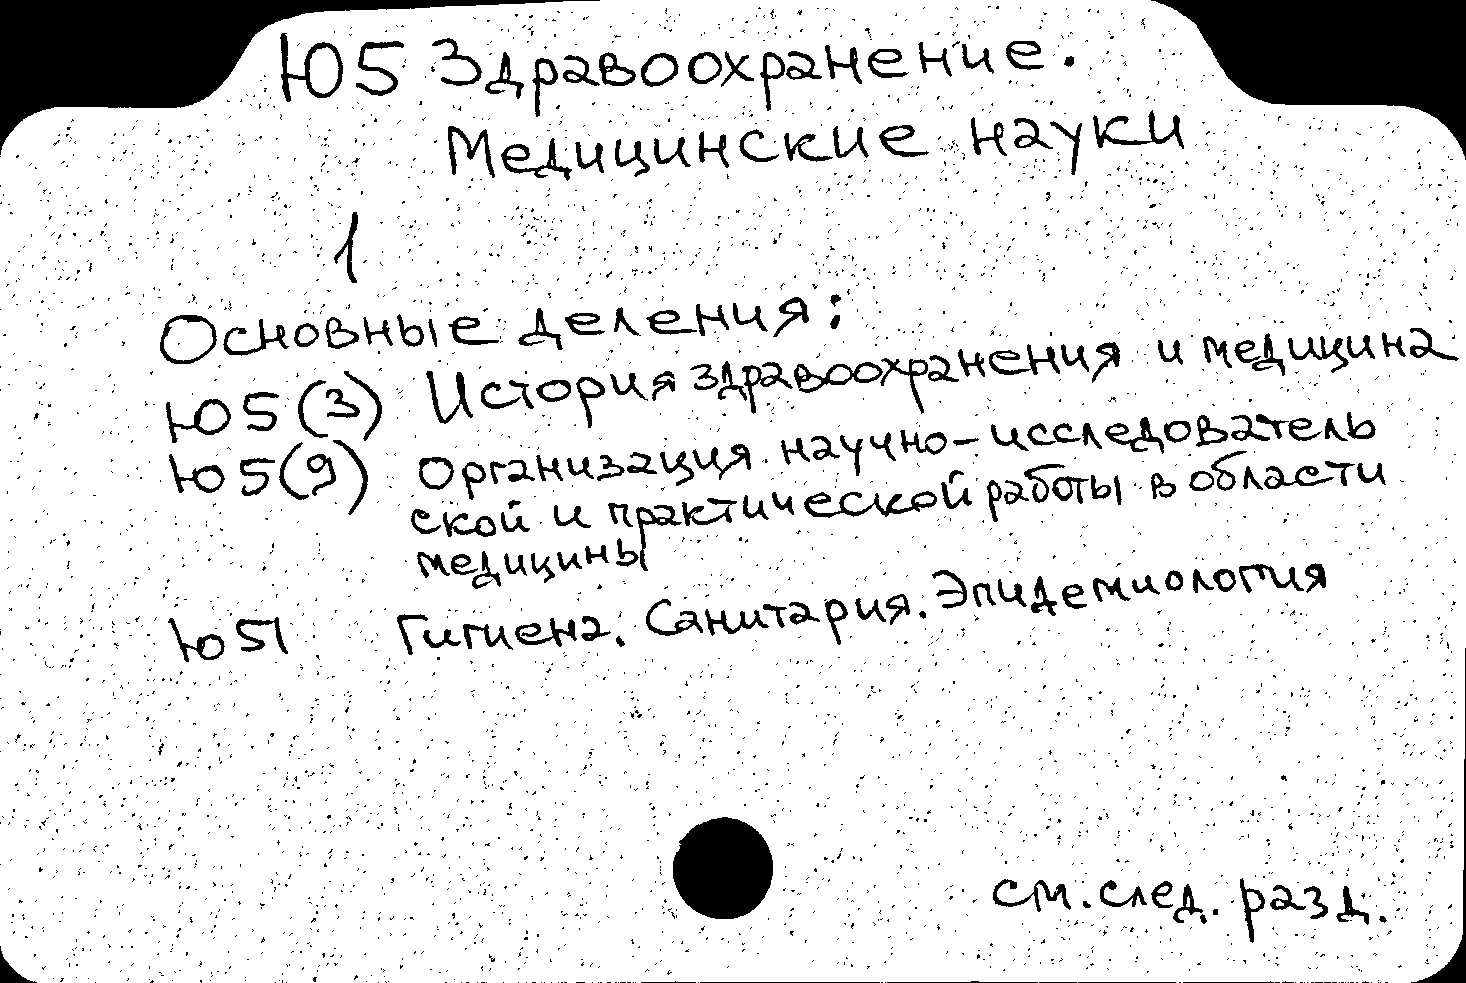 Ю5 Здравоохранение.
Медицинские науки
1
Основные деления:
Ю5(3) История здравоохранения и медицина
Ю5(9) Организация научно-исследователь
ской и практической работы в области
медицины
Ю51 Гигиена. Санитария. Эпидемиология
см. след. разд.